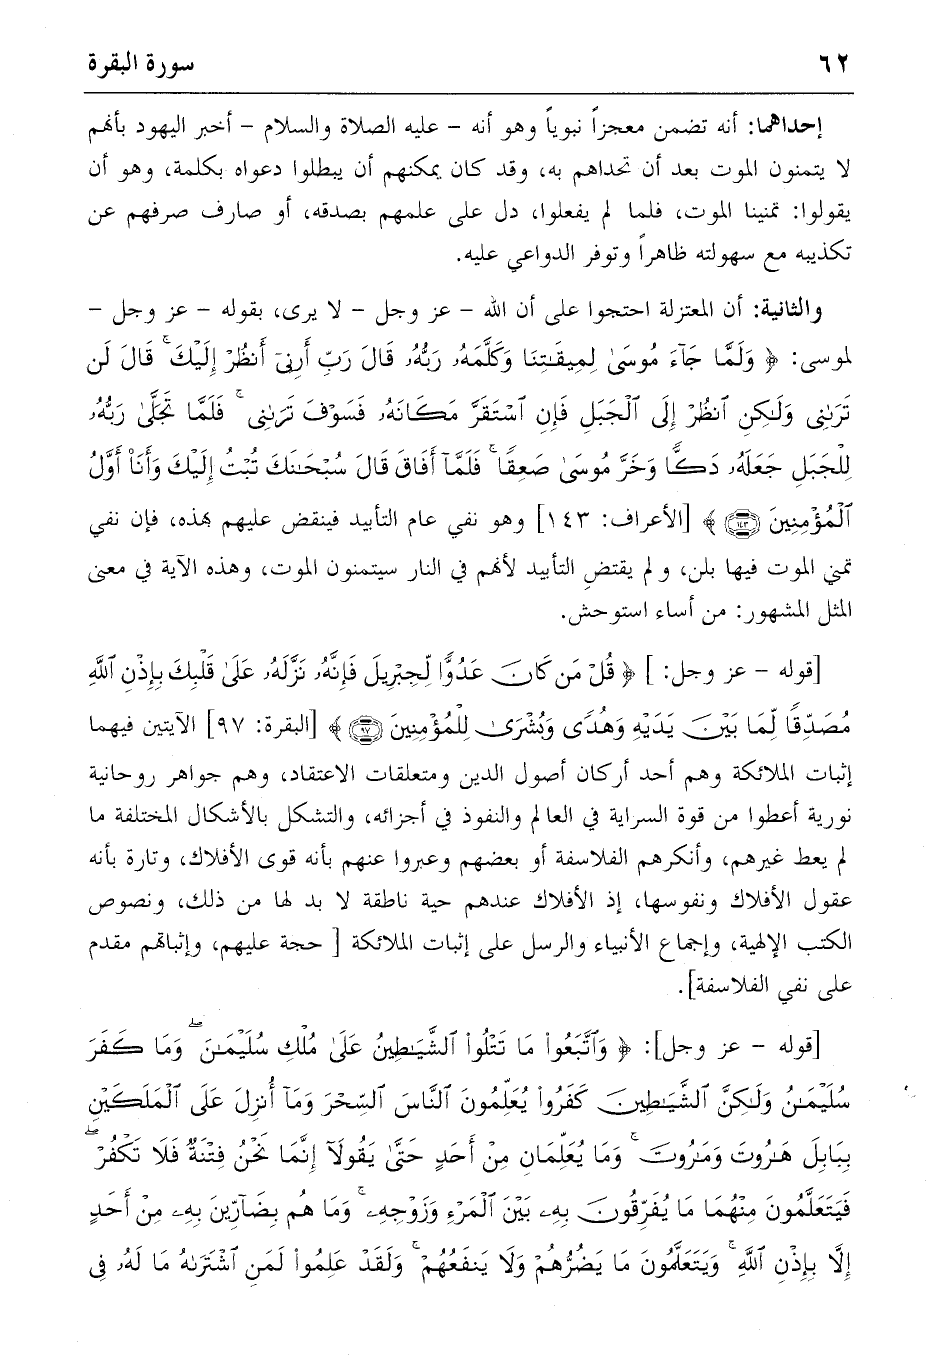 ٦٢ سورة البقرة
إحداهما: أنه تضمن معجزاً نبوياً وهو أنه - عليه الصلاة والسلام - أخبر اليهود بأنهم
لا يتمنون الموت بعد أن تحداهم به، وقد كان يمكنهم أن يبطلوا دعواه بكلمة، وهو أن
يقولوا: تمنينا الموت، فلما لم يفعلوا، دل على علمهم بصدقه، أو صارف صرفهم عن
تكذيبه مع سهولته ظاهراً وتوفر الدواعي عليه.
والثانية: أن المعتزلة احتجوا على أن الله - عز وجل - لا يرى، بقوله - عز وجل -
لموسى: ﴿ وَلَمَّا جَآءَ مُوسَىٰ لِمِيقَـٰتِنَا وَكَلَّمَهُۥ رَبُّهُۥ قَالَ رَبِّ أَرِنِىٓ أَنظُرْ إِلَيْكَ ۚ قَالَ لَن
تَرَىٰنِى وَلَـٰكِنِ ٱنظُرْ إِلَى ٱلْجَبَلِ فَإِنِ ٱسْتَقَرَّ مَكَانَهُۥ فَسَوْفَ تَرَىٰنِى ۚ فَلَمَّا تَجَلَّىٰ رَبُّهُۥ
لِلْجَبَلِ جَعَلَهُۥ دَكًّا وَخَرَّ مُوسَىٰ صَعِقًا ۚ فَلَمَّآ أَفَاقَ قَالَ سُبْحَـٰنَكَ تُبْتُ إِلَيْكَ وَأَنَا۠ أَوَّلُ
ٱلْمُؤْمِنِينَ ١٤٣ ﴾ [الأعراف: ١٤٣] وهو نفي عام التأبيد فينقض عليهم بهذه، فإن نفي
تمني الموت فيها بلن، و لم يقتض التأبيد لأنهم في النار سيتمنون الموت، وهذه الآية في معنى
المثل المشهور: من أساء استوحش.
[قوله - عز وجل: ] ﴿ قُلْ مَن كَانَ عَدُوًّا لِّجِبْرِيلَ فَإِنَّهُۥ نَزَّلَهُۥ عَلَىٰ قَلْبِكَ بِإِذْنِ ٱللَّهِ
مُصَدِّقًا لِّمَا بَيْنَ يَدَيْهِ وَهُدًى وَبُشْرَىٰ لِلْمُؤْمِنِينَ ٩٧ ﴾ [البقرة: ٩٧] الآيتين فيهما
إثبات الملائكة وهم أحد أركان أصول الدين ومتعلقات الاعتقاد، وهم جواهر روحانية
نورية أعطوا من قوة السراية في العالم والنفوذ في أجزائه، والتشكل بالأشكال المختلفة ما
لم يعط غيرهم، وأنكرهم الفلاسفة أو بعضهم وعبروا عنهم بأنه قوى الأفلاك، وتارة بأنه
عقول الأفلاك ونفوسها، إذ الأفلاك عندهم حية ناطقة لا بد لها من ذلك، ونصوص
الكتب الإلهية، وإجماع الأنبياء والرسل على إثبات الملائكة [ حجة عليهم، وإثباتهم مقدم
على نفي الفلاسفة].
[قوله - عز وجل]: ﴿ وَٱتَّبَعُوا۟ مَا تَتْلُوا۟ ٱلشَّيَـٰطِينُ عَلَىٰ مُلْكِ سُلَيْمَـٰنَ ۖ وَمَا كَفَرَ
سُلَيْمَـٰنُ وَلَـٰكِنَّ ٱلشَّيَـٰطِينَ كَفَرُوا۟ يُعَلِّمُونَ ٱلنَّاسَ ٱلسِّحْرَ وَمَآ أُنزِلَ عَلَى ٱلْمَلَكَيْنِ
بِبَابِلَ هَـٰرُوتَ وَمَـٰرُوتَ ۚ وَمَا يُعَلِّمَانِ مِنْ أَحَدٍ حَتَّىٰ يَقُولَآ إِنَّمَا نَحْنُ فِتْنَةٌ فَلَا تَكْفُرْ ۖ
فَيَتَعَلَّمُونَ مِنْهُمَا مَا يُفَرِّقُونَ بِهِۦ بَيْنَ ٱلْمَرْءِ وَزَوْجِهِۦ ۚ وَمَا هُم بِضَآرِّينَ بِهِۦ مِنْ أَحَدٍ
إِلَّا بِإِذْنِ ٱللَّهِ ۚ وَيَتَعَلَّمُونَ مَا يَضُرُّهُمْ وَلَا يَنفَعُهُمْ ۚ وَلَقَدْ عَلِمُوا۟ لَمَنِ ٱشْتَرَىٰهُ مَا لَهُۥ فِى